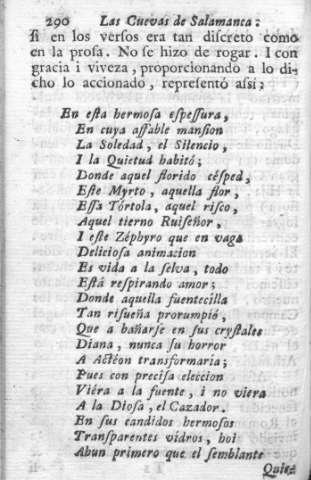 290 Las Cuevas de Salamanca:
si en los versos era tan discreto como
en la prosa. No se hizo de rogar. I con
gracia i viveza, proporcionando a lo di-
cho lo accionado, representó assi:
En esta hermosa espessura,
En cuya affable mansion
La Soledad, el Silencio,
I la Quietud habitó;
Donde aquel florido césped,
Este Myrto, aquella flor,
Essa Tórtola, aquel risco,
Aquel tierno Ruiseñor,
I este Zéphyro que en vaga
Deliciosa animacion
Es vida a la selva, todo
Está respirando amor;
Donde aquella fuentecilla
Tan risueña prorumpió,
Que a bañarse en sus crystales
Diana, nunca su horror
A Actéon transformaria;
Pues con precisa eleccion
Viéra a la fuente, i no viera
A la Diosa, el Cazador.
En sus candidos hermosos
Transparentes vidros, hoi
Ahun primero que el semblante
Quise